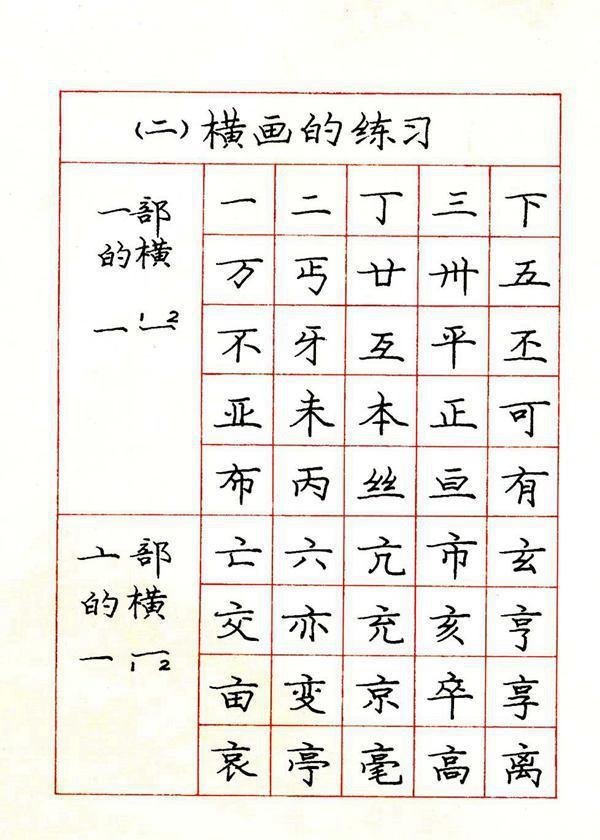 （二）横画的练习
一部
的横
一 1 2
一 二 丁 三 下
万 丐 廿 卅 五
不 牙 互 平 丕
亚 未 本 正 可
布 丙 丝 亘 有
亠部
的横
一 1 2
亡 六 亢 市 玄
交 亦 充 亥 亨
亩 变 京 卒 享
哀 亭 毫 高 离